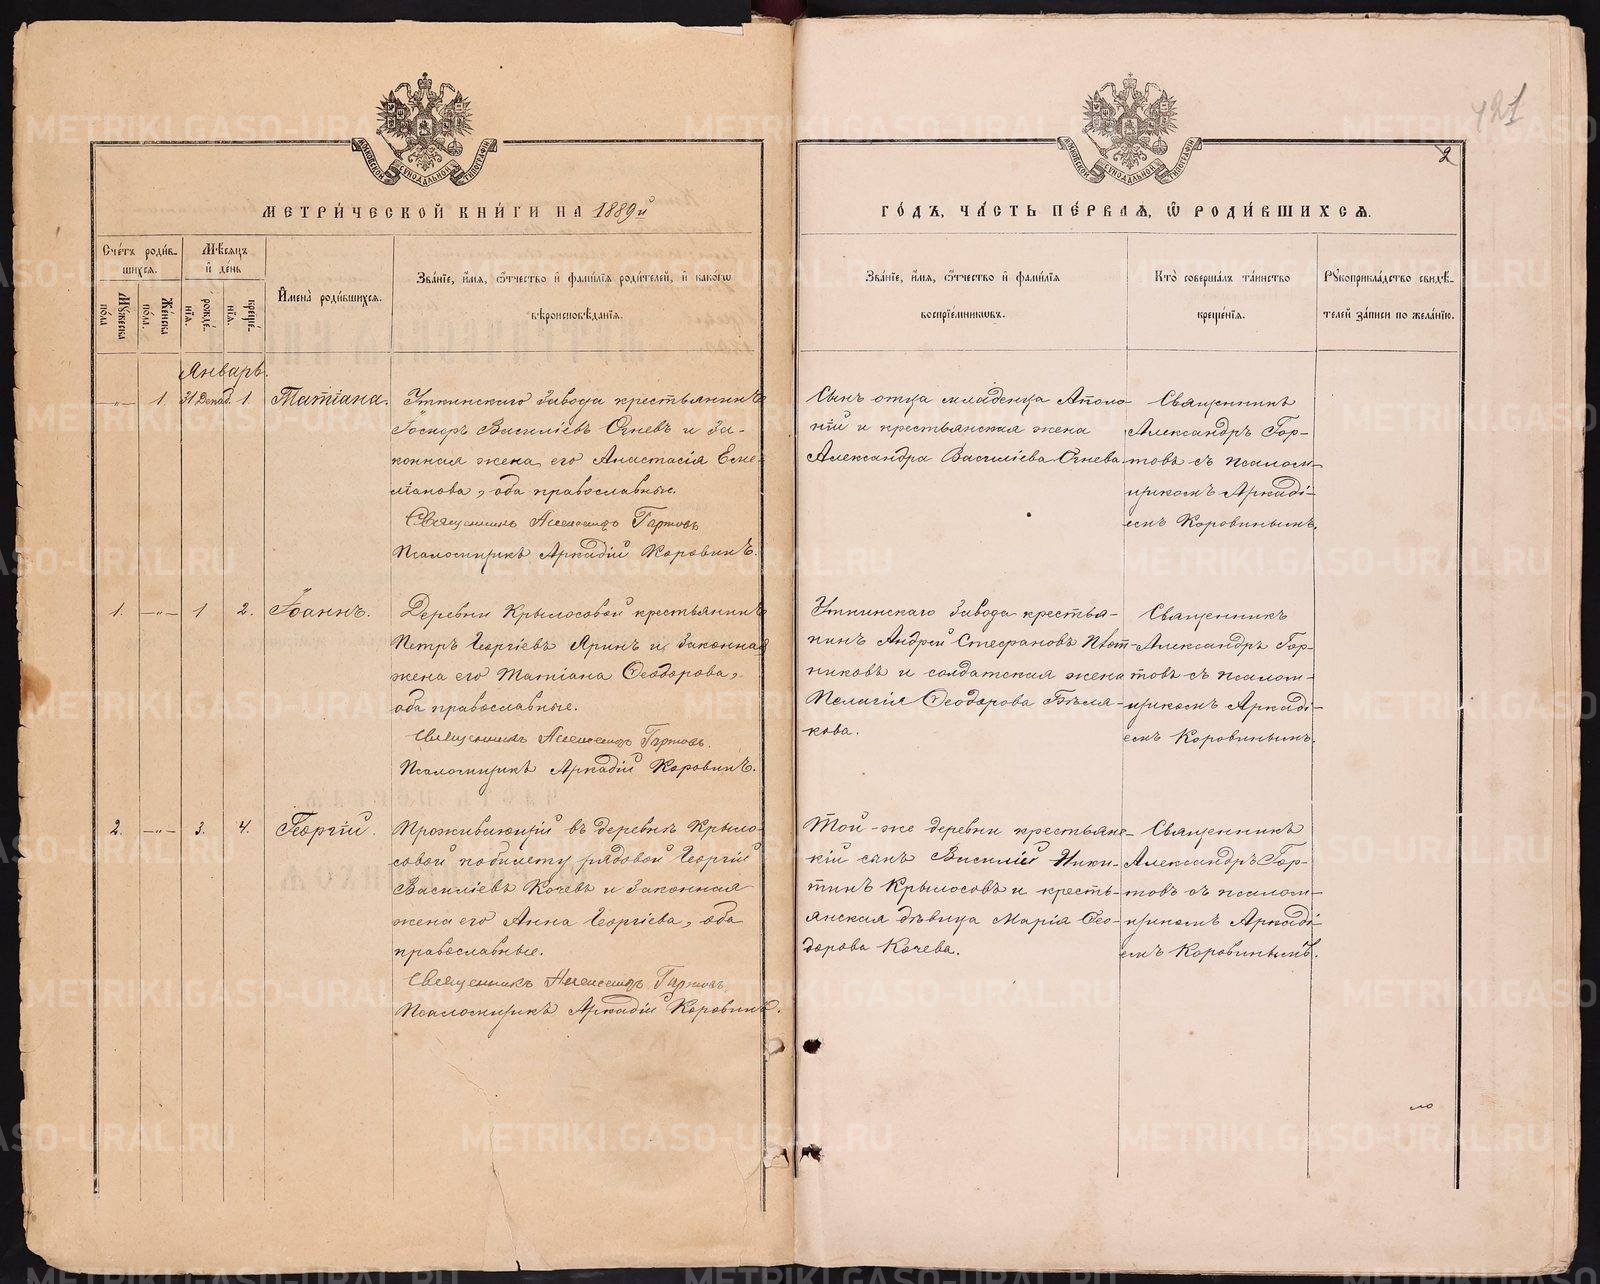 421
2
МОСКОВСКОЙ СѴНОДАЛЬНОЙ ТИПОГРАФІИ
МОСКОВСКОЙ СѴНОДАЛЬНОЙ ТИПОГРАФІИ
МЕТРИ́ЧЕСКОЙ КНИ́ГИ НА 1889й
ГО́ДЪ, ЧА́СТЬ ПЕ́РВАѦ, Ѽ РОДИ́ВШИХСѦ.
Сче́тъ роди́в-
шихсѧ.
Мꙋ́жеска по́ла
Же́нска по́ла.
Мѣ́сѧцъ
и҆ де́нь
рожде́-
нїѧ.
креще́-
нїѧ.
И҆мена̀ роди́вшихсѧ.
Зва́нїе, и҆́мѧ, ѻ҆́тчество и҆ фами́лїѧ роди́телей, и҆ како́гѡ
вѣроисповѣ́данїѧ.
Зва́нїе, и҆́мѧ, ѻ҆́тчество и҆ фами́лїѧ
воспрїе́мникѡвъ.
Кто̀ соверша́лъ та́инство
креще́нїѧ.
Рꙋкоприкла́дство свидѣ́-
телей за́писи по жела́нїю.
Январь.
-"- 1. 31 Декаб. 1. Татіана.
Уткинскаго завода крестьянинъ
Іосифъ Василіевъ Огневъ и за-
конная жена его Анастасія Еме-
ліанова, оба православные.
Священникъ Александръ Гортовъ
Псаломщикъ Аркадій Коровинъ.
Сынъ отца младенца Аполо-
ній и крестьянская жена
Александра Василіева Огнева.
Священникъ
Александръ Гор-
товъ съ псалом-
щикомъ Аркаді-
емъ Коровинымъ.
1. -"- 1 2. Іоаннъ.
Деревни Крылосовой крестьянинъ
Петръ Георгіевъ Яринъ и законная
жена его Татіана Ѳеодорова,
оба православные.
Священникъ Александръ Гортовъ.
Псаломщикъ Аркадій Коровинъ.
Уткинскаго завода крестья-
нинъ Андрей Стефановъ Плот-
никовъ и солдатская жена
Пелагія Ѳеодорова Бѣля-
кова.
Священникъ
Александръ Гор-
товъ съ псалом-
щикомъ Аркаді-
емъ Коровинымъ.
2. -"- 3. 4. Георгій.
Проживающій въ деревнѣ Крыло-
совой по билету рядовой Георгій
Василіевъ Кочевъ и законная
жена его Анна Георгіева, оба
православные.
Священникъ Александръ Гортовъ.
Псаломщикъ Аркадій Коровинъ.
Той-же деревни крестьянс-
кій сынъ Василій Ники-
тинъ Крылосовъ и кресть-
янская дѣвица Марія Ѳео-
дорова Кочева.
Священникъ
Александръ Гор-
товъ съ псалом-
щикомъ Аркаді-
емъ Коровинымъ.
METRIKI.GASO-URAL.RU